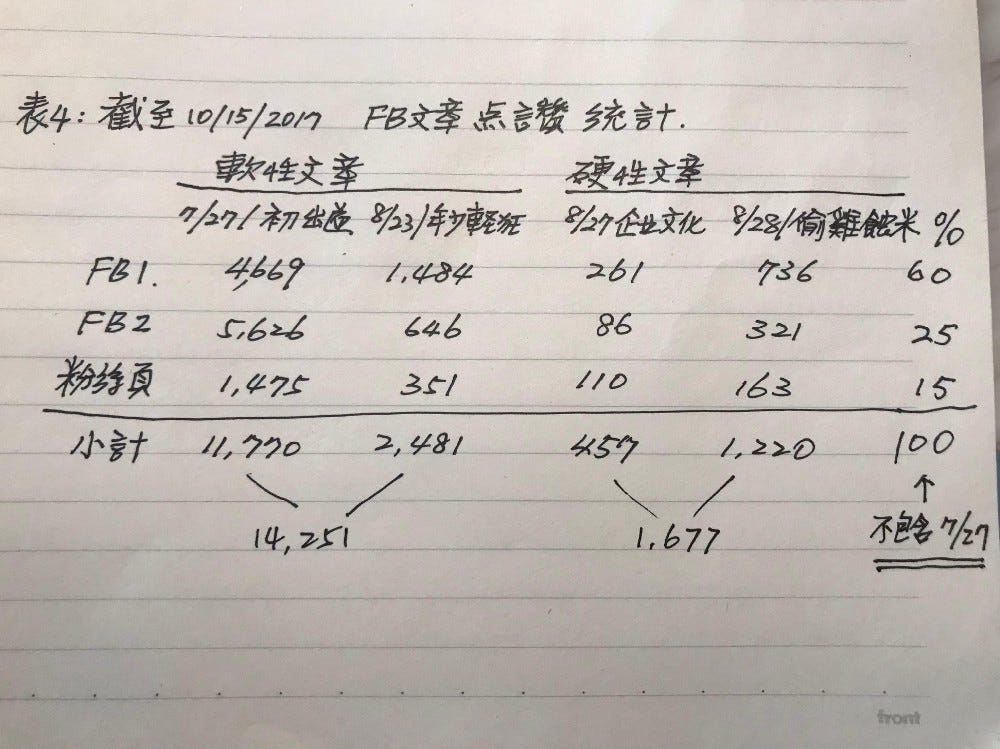 表4: 截至 10/15/2017 FB文章 点讃 統計.
軟性文章 硬性文章
7/27/初出道 8/23/年少輕狂 8/27企业文化 8/28/偷雞蝕米 %
FB1. 4,669 1,484 261 736 60
FB2 5,626 646 86 321 25
粉絲頁 1,475 351 110 163 15
小計 11,770 2,481 457 1,220 100
14,251 1,677 不包含 7/27
front